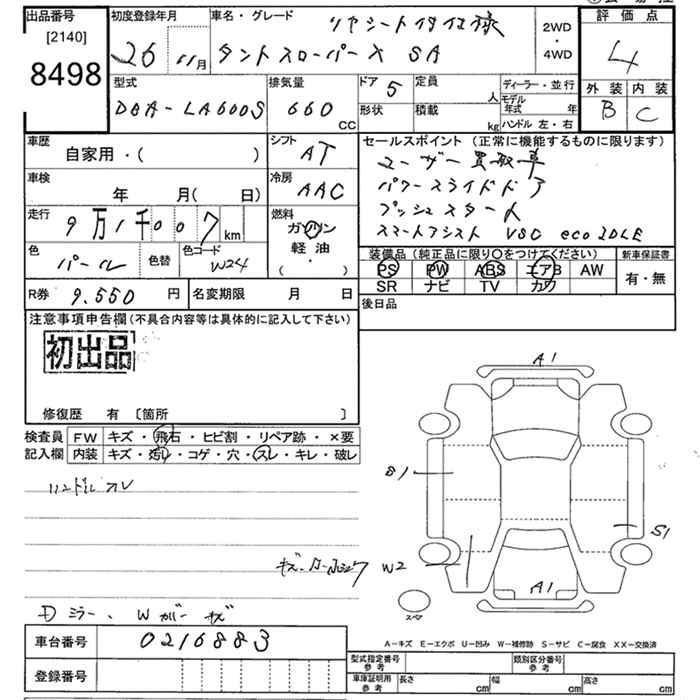 出品番号
[2140]
8498
初度登録年月
26 11月
車名・グレード
リヤシート付仕様
タントスローパー X SA
2WD
・
4WD
評価点
4
外装 内装
B C
型式
DBA-LA600S
排気量
660 CC
ドア 5
形状
定員 人
積載 kg
ディーラー・並行
モデル年式 年
ハンドル 左・右
車歴
自家用・( )
シフト
AT
車検
年 月( 日)
冷房
AAC
走行
9万1千007 km
燃料
ガソリン
軽油
( ・ )
色
パール
色替
色コード
W24
R券 9.550 円
名変期限 月 日
セールスポイント (正常に機能するものに限ります)
ユーザー買取車
パワースライドドア
プッシュスタート
スマートアシスト VSC eco IDLE
装備品(純正品に限り○をつけてください)
PS PW ABS エアB AW
SR ナビ TV カワ
新車保証書
有・無
後日品
注意事項申告欄(不具合内容等は具体的に記入して下さい)
初出品
修復歴 有 〔箇所 〕
検査員
記入欄
FW キズ・飛石・ヒビ割・リペア跡・×要
内装 キズ・汚レ・コゲ・穴・スレ・キレ・破レ
ハンドルスレ
A1
S1
W2
A1
スペア
ミラー、Wカバーキズ
車台番号 0216883
登録番号
A-キズ E-エクボ U-凹み W-補修跡 S-サビ C-腐食 XX-交換済
型式指定番号
参考
類別区分番号
参考
車庫証明用
参考
長さ cm
幅 cm
高さ cm